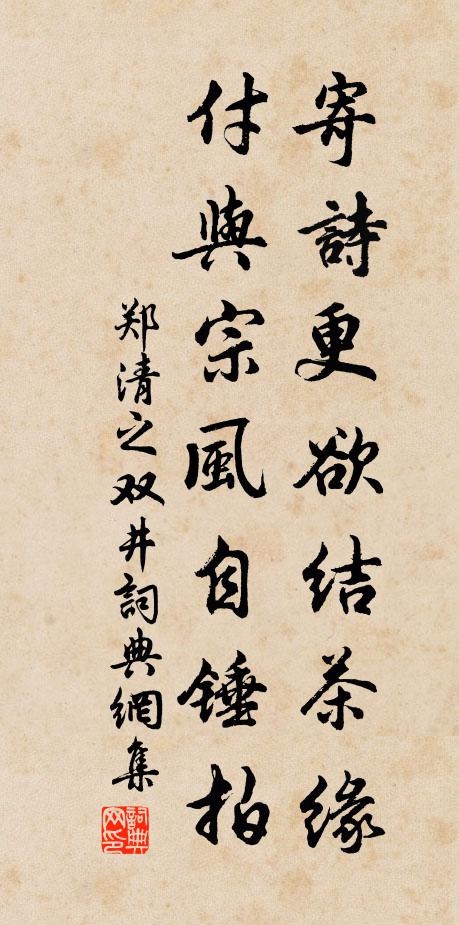 寄詩更欲結茶緣
付與宗風自錘拍
郑清之双井詞典網集
詞典网印